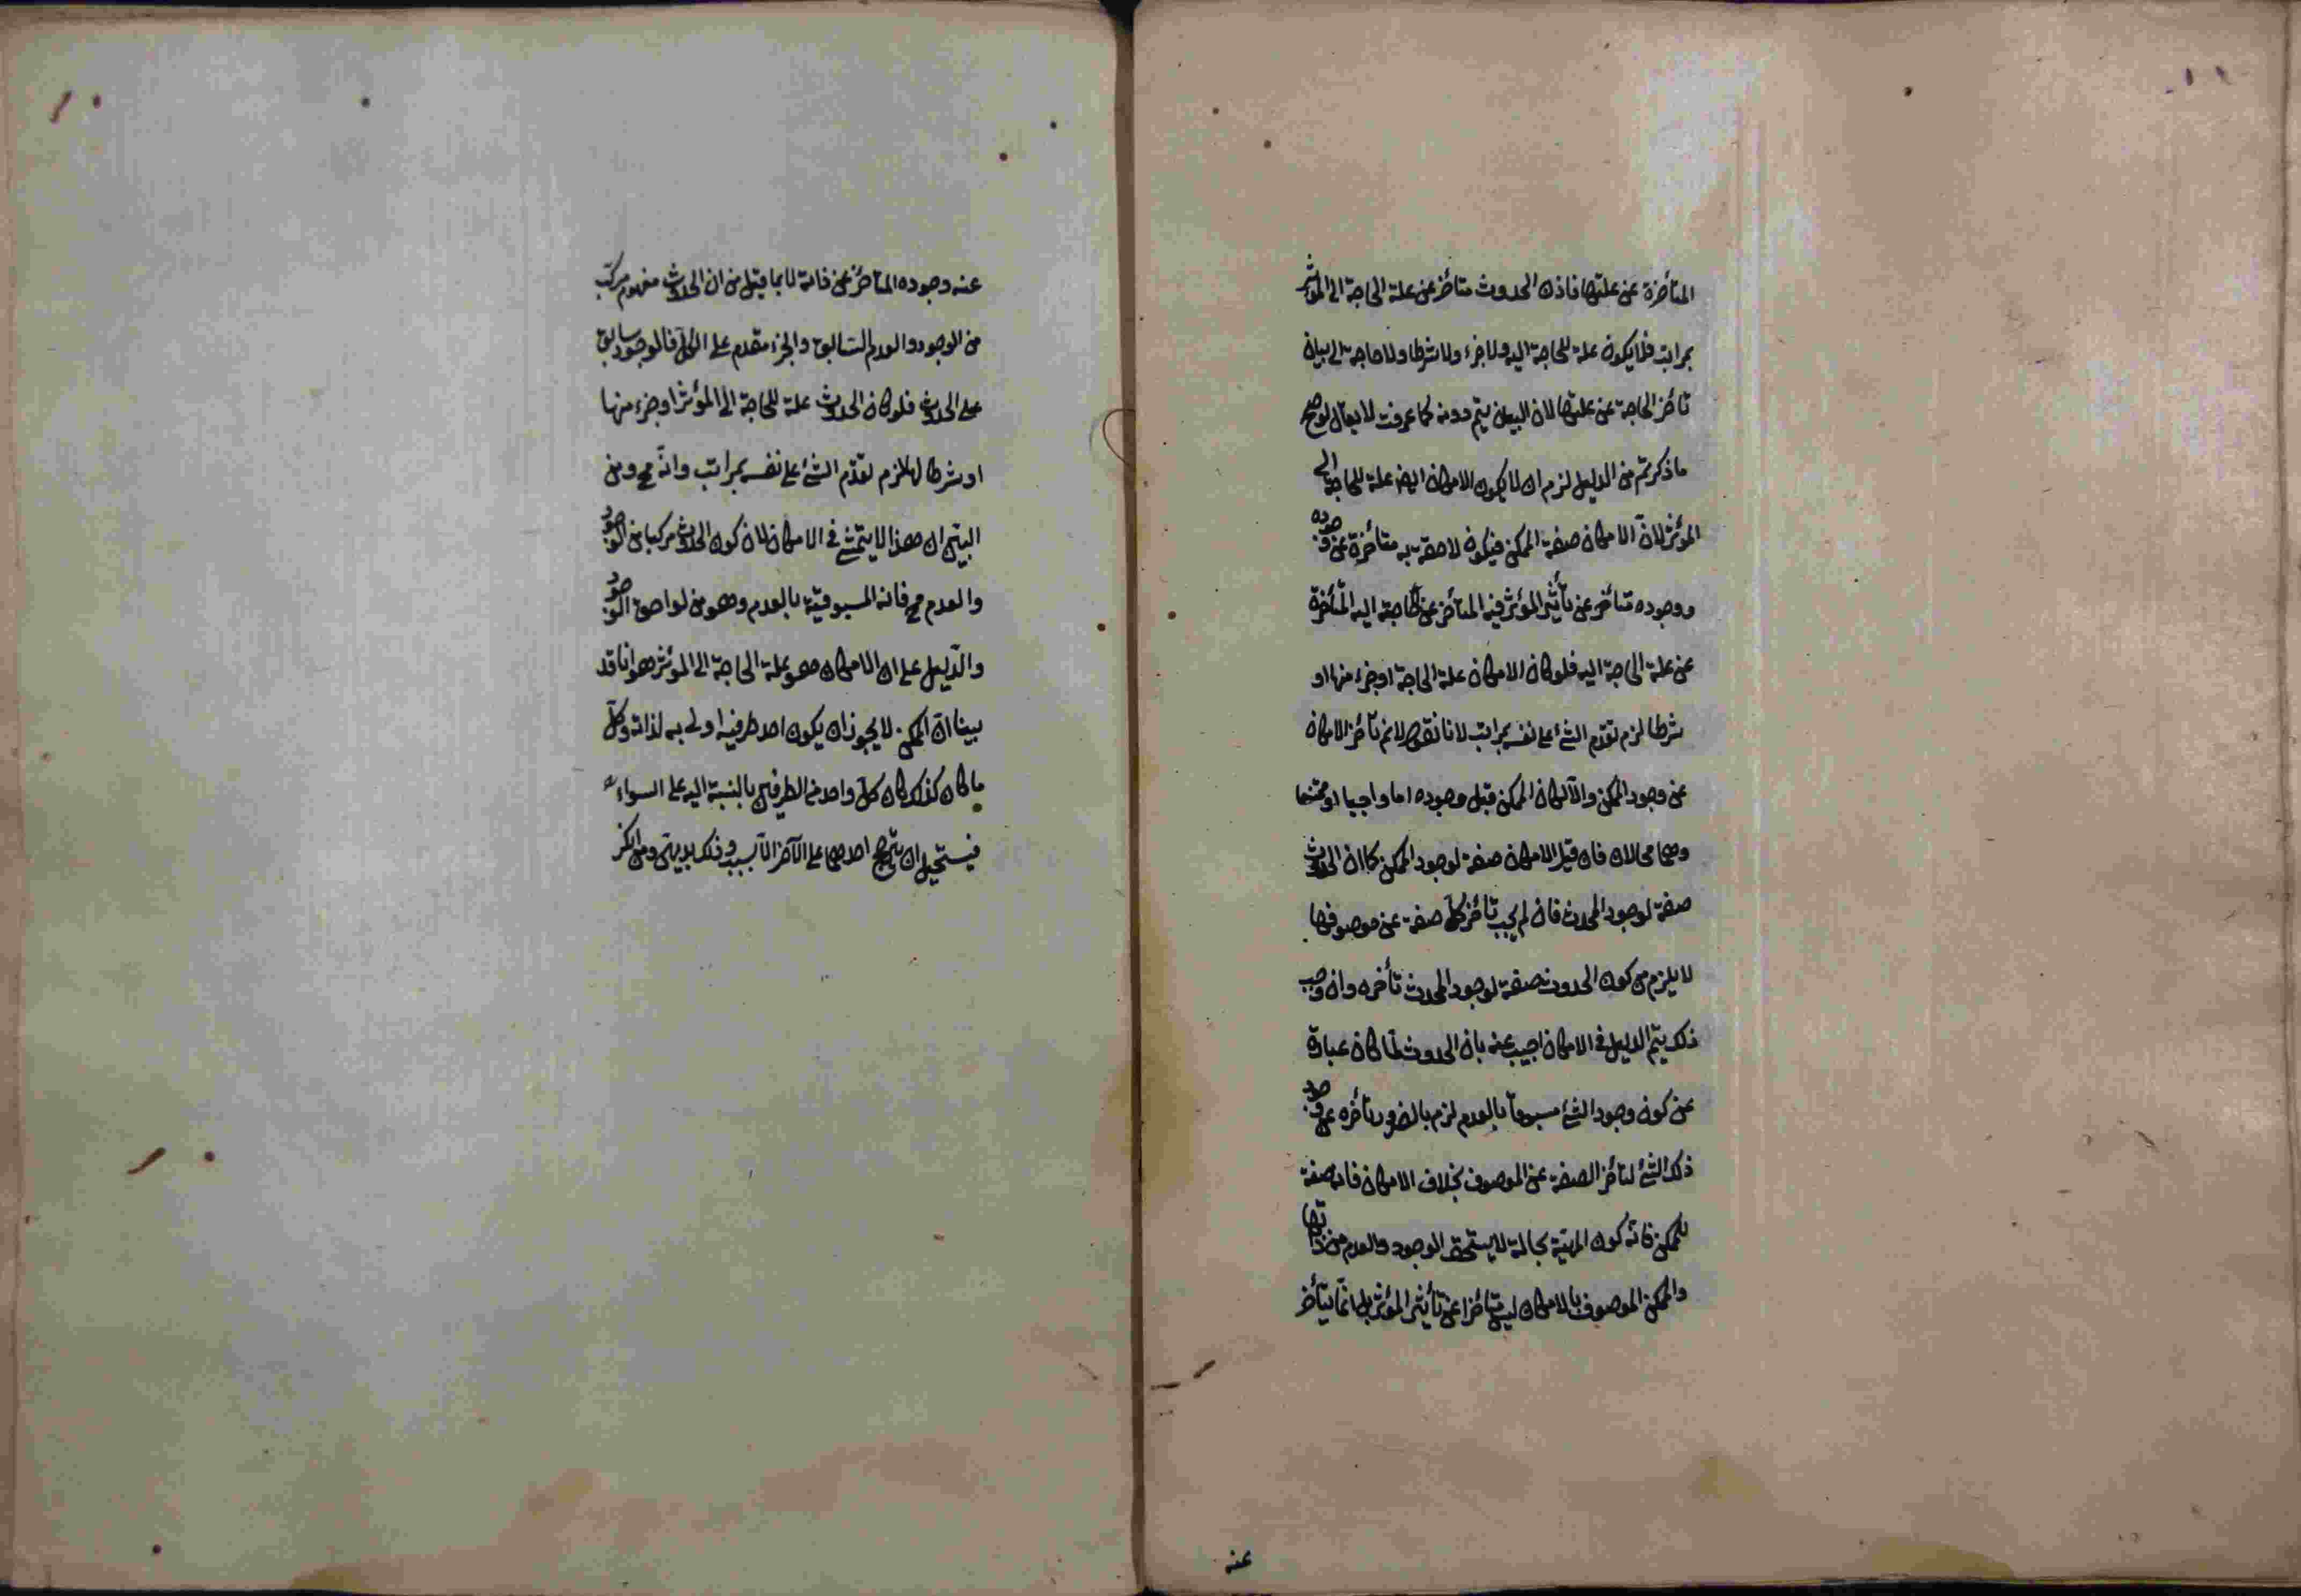 المتأخرة عن علتها فاذن الحدوث متأخر عن علة الحاجة الى المؤثر
بمراتب فلا يكون علة للحاجة اليه ولا جزء ولا شرطا ولا حاجة الى بيان
تأخر الحاجة عن علتها لان البيان يتم دونه كما عرفت لا يقال لو صح
ما ذكرتم من الدليل لزم ان لا يكون الامكان ايضا علة للحاجة الى
المؤثر لانّ الامكان صفة الممكن فيكون لاحقة به متأخرة عن وجوده
ووجوده متأخر عن تأثير المؤثر فيه المتأخر عن الحاجة اليه المتأخرة
عن علة الحاجة اليه فلو كان الامكان علة الحاجة او جزء منها او
شرطا لزم تقدم الشئ على نفسه بمراتب لانا نقول لا نم تأخر الامكان
عن وجود الممكن والا لكان الممكن قبل وجوده اما واجبا او ممتنعا
وهما محالان فان قيل الامكان صفة لوجود الممكن كما ان الحدوث
صفة لوجود المحدث فان لم يجب تأخر كل صفة عن موصوفها
لا يلزم من كون الحدوث صفة لوجود المحدث تأخره وان وجب
ذلك يتم الدليل في الامكان اجيب عنه بان الحدوث لما كان عبارة
عن كون وجود الشئ مسبوقا بالعدم لزم بالضرورة تأخره عن وجود
ذلك الشئ لتأخر الصفة عن الموصوف بخلاف الامكان فانه صفة
للممكن فانه كون المهية بحالة لا يستحق الوجود والعدم من ذاتها
والممكن الموصوف بالامكان ليس متأخرا عن تأثير المؤثر بل انما يتأخر
عنه
عنه وجوده المتأخر عن ذاته لا بما قيل من ان الحدوث مفهوم مركب
من الوجود والعدم السابق والجزء مقدم على الكل فالوجود سابق
على الحدوث فلو كان الحدوث علة للحاجة الى المؤثر او جزء منها
او شرطا لها لزم تقدّم الشئ على نفسه بمراتب وانّه مح ومن
البيّن ان هذا لا يتمشى في الامكان لان كون الحدوث مركبا من الوجود
والعدم مح فانه المسبوقية بالعدم وهو من لواحق الوجود
والدّليل على ان الامكان هو علة الحاجة الى المؤثر هو انا قد
بينا ان الممكن لا يجوز ان يكون احد طرفيه اولى به لذاته وكلّ
ما كان كذلك كان كل واحد من الطرفين بالنسبة اليه على السواء
فيستحيل ان يترجح احدهما على الآخر الا بسبب وذلك بديهى ومن انكر